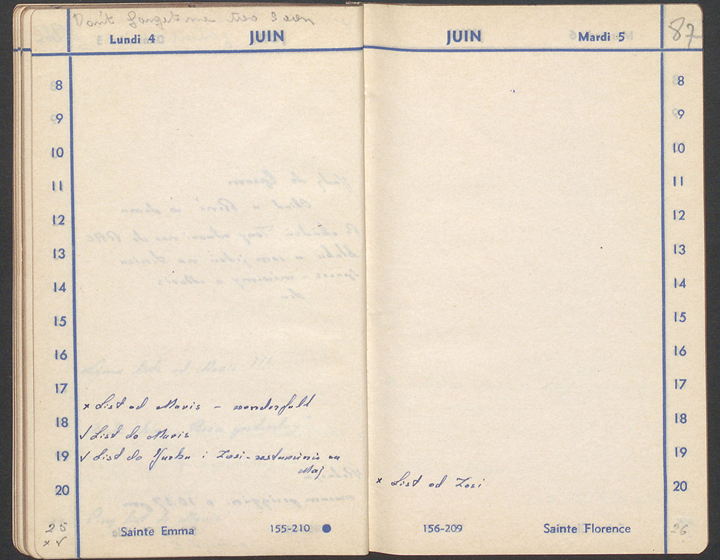 Lundi 4
JUIN
8
9
10
11
12
13
14
15
16
17
× List od Maris – wonderfull
18
√ List do Maris
19
√ List do Jurka i Zosi - zestawienie za
Maj
20
25
× √
Sainte Emma
155-210
JUIN
Mardi 5
87
8
9
10
11
12
13
14
15
16
17
18
19
× List od Zosi
20
156-209
Sainte Florence
26